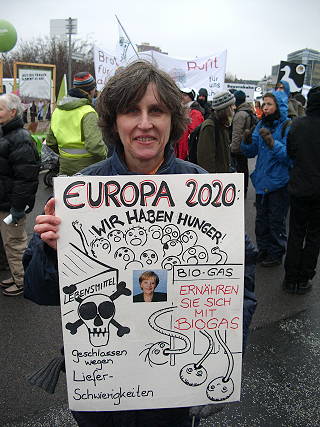 EUROPA 2020:
WIR HABEN HUNGER!
LEBENSMITTEL
BIO-GAS
ERNÄHREN
SIE SICH
MIT
BIOGAS
Geschlossen
wegen
Liefer-
Schwierigkeiten